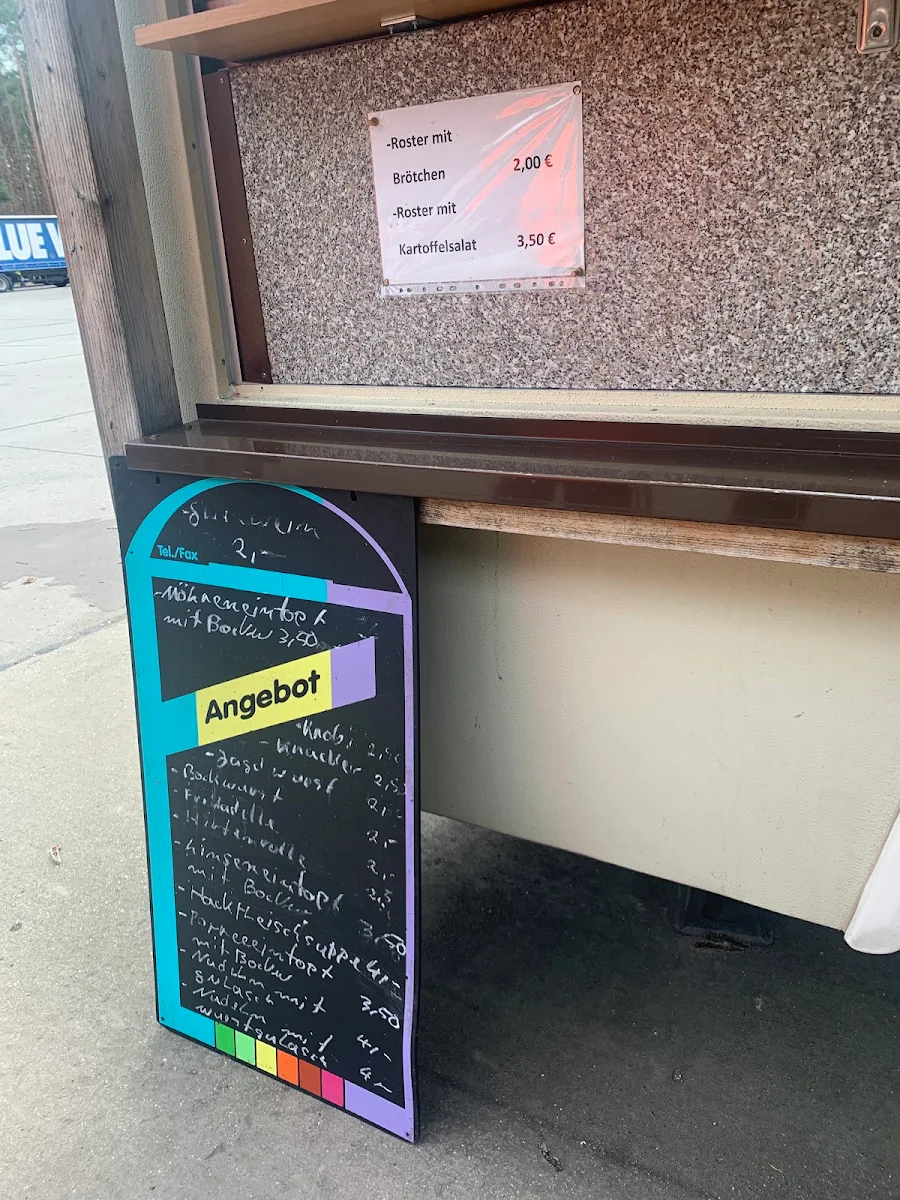 -Roster mit
Brötchen 2,00 €
-Roster mit
Kartoffelsalat 3,50 €
LUE
Tel./Fax
2,-
-Möhreneintopf
mit Bocker 3,50
Angebot
-Knobi
-Knacker 2,50
-Jagdwurst
-Bockwurst 2,-
-Frikadelle 2,-
-Hirtenrolle 2,5
-Linseneintopf
mit Bocker 3,50
-Hackfleischsuppe 4,-
-Porreeeintopf
mit Bocker 3,50
-Nudeln mit
Gulasch 4,-
-Nudeln mit
Wurstgulasch 4,-